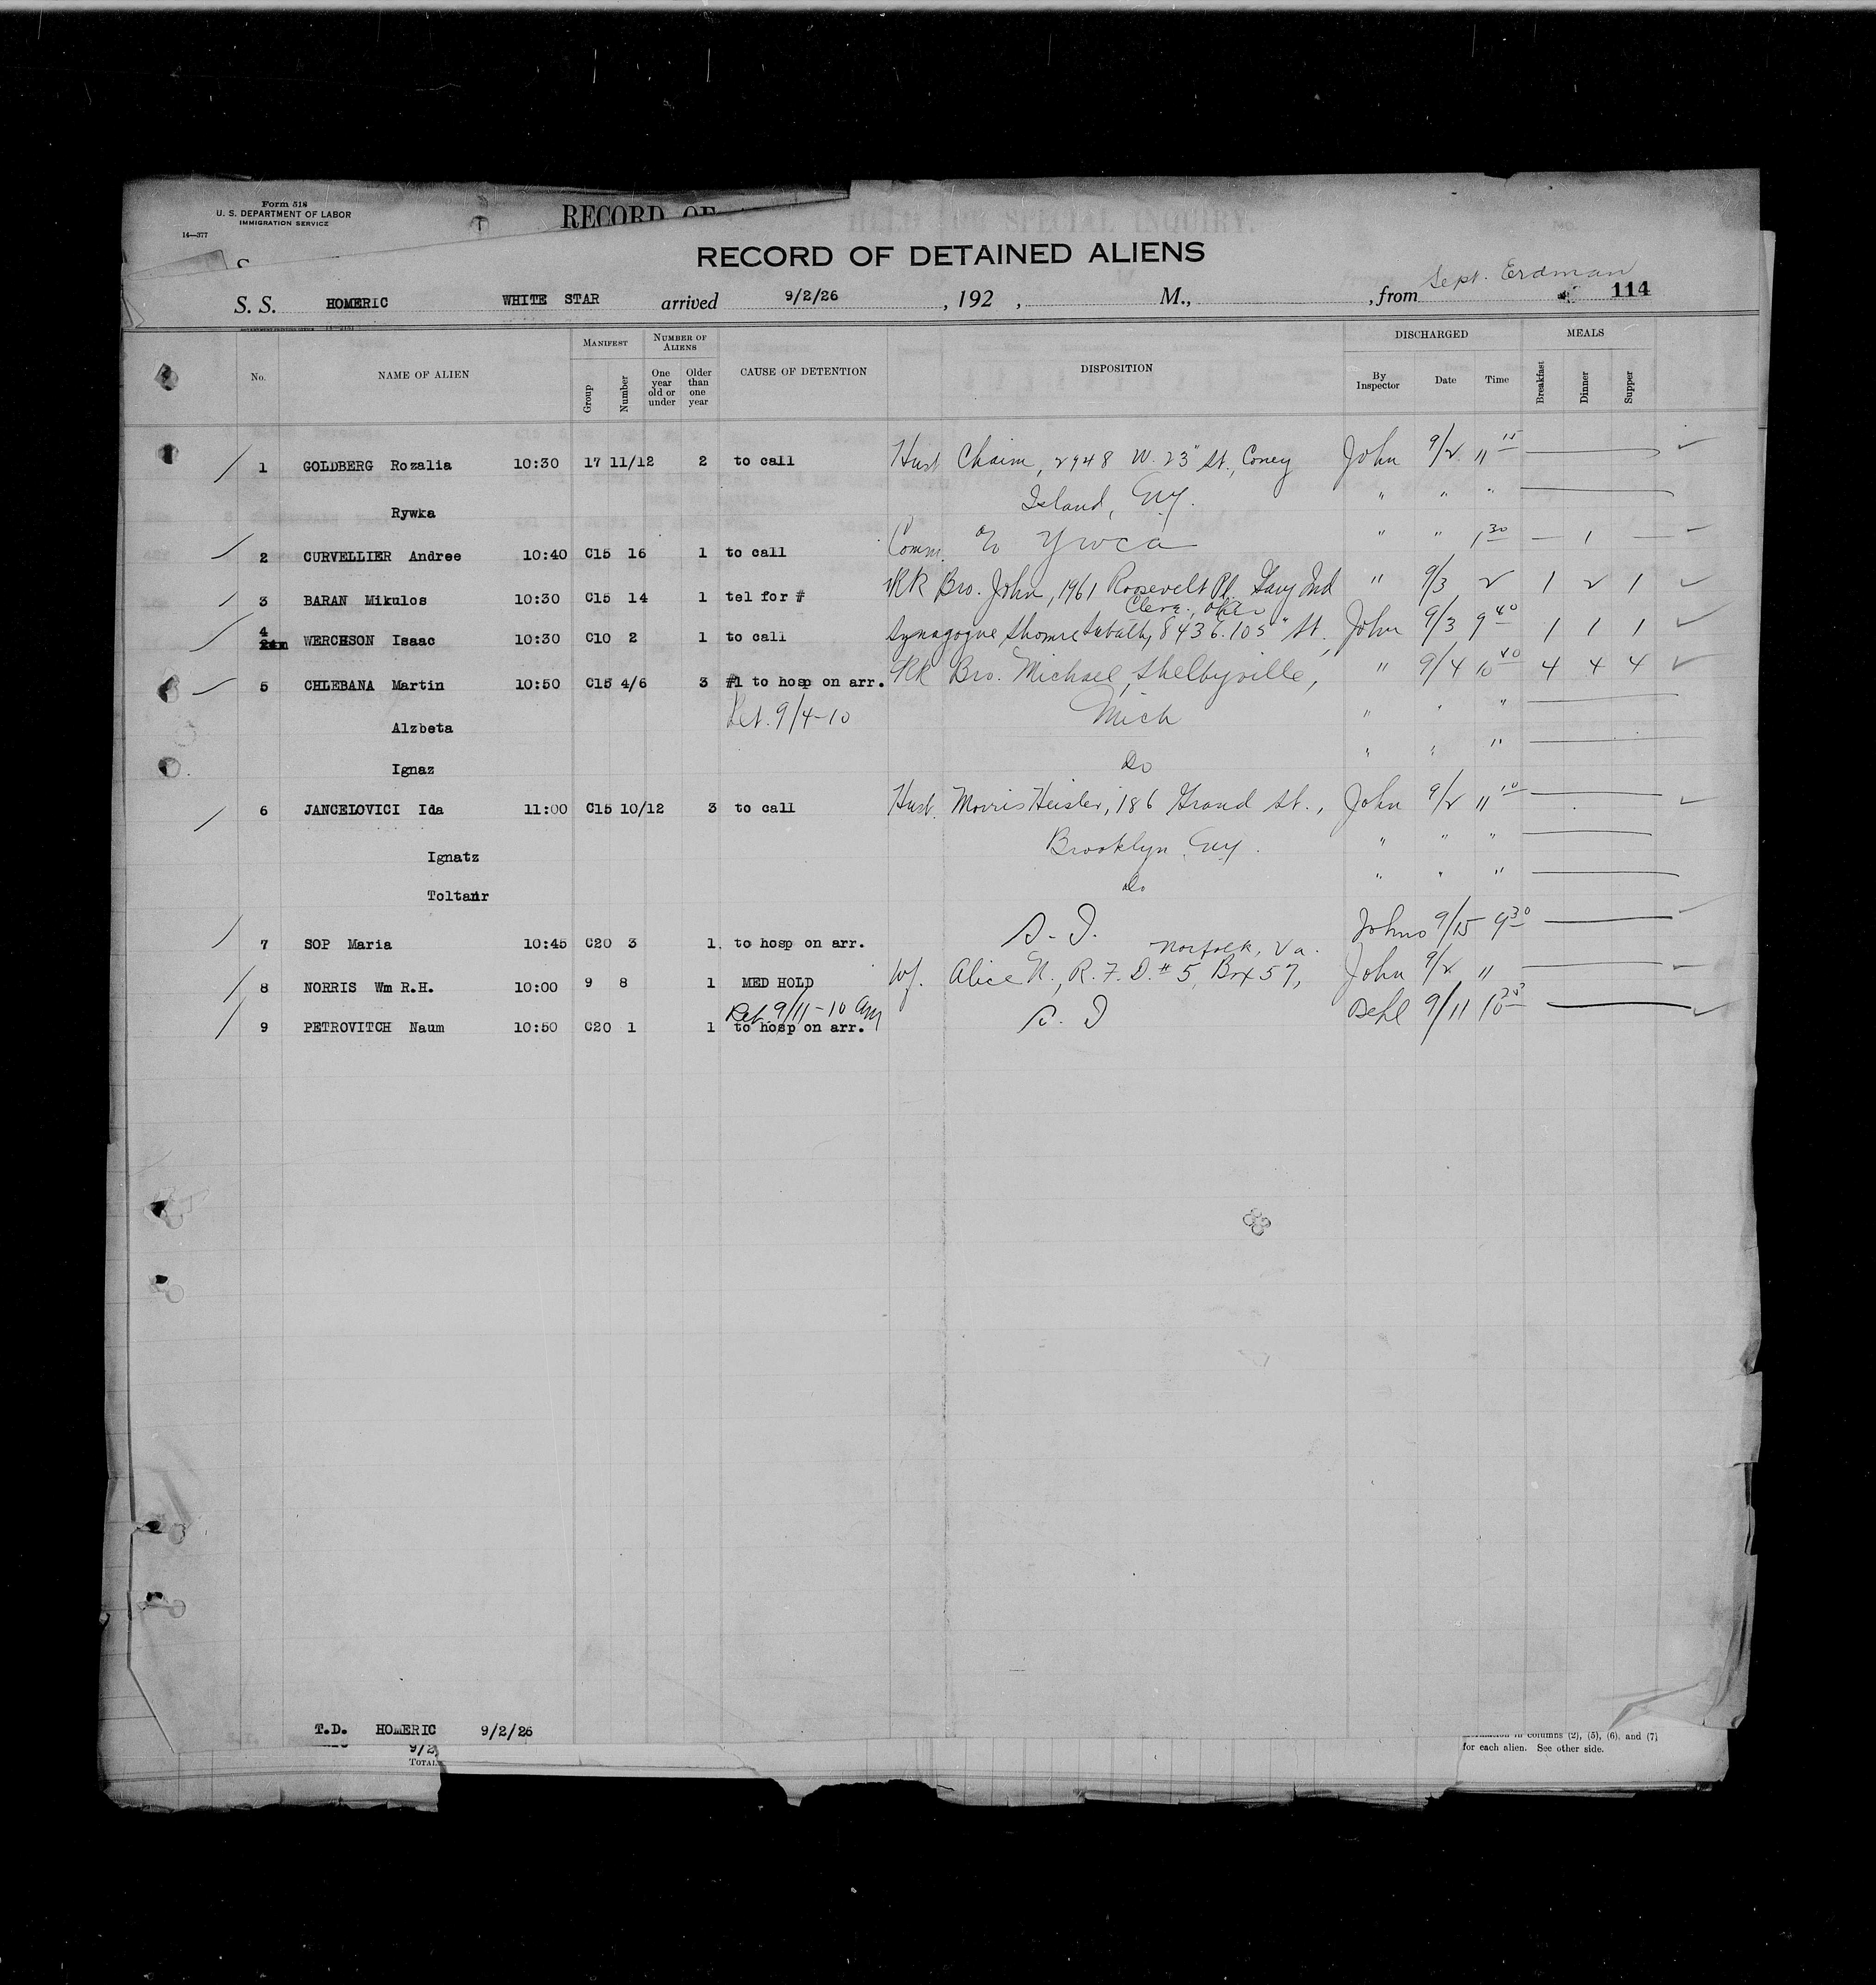 Form 518
U. S. DEPARTMENT OF LABOR
IMMIGRATION SERVICE
14—377
RECORD OF
HELD FOR SPECIAL INQUIRY.
RECORD OF DETAINED ALIENS
Sept. Erdman
S. S. HOMERIC WHITE STAR arrived 9/2/26 , 192 , M., , from 114
No. NAME OF ALIEN MANIFEST Group Number NUMBER OF ALIENS One year old or under Older than one year CAUSE OF DETENTION DISPOSITION DISCHARGED By Inspector Date Time MEALS Breakfast Dinner Supper
1 GOLDBERG Rozalia 10:30 17 11/12 2 to call Husb Chaim, 2948 W. 23" St., Coney John 9/2 11 15
Rywka Island, NY. " " "
2 CURVELLIER Andree 10:40 C15 16 1 to call Comm c/o YWCA " " 1 30 — 1 —
3 BARAN Mikulos 10:30 C15 14 1 tel for # RR Bro. John, 1961 Roosevelt Pl. Gary Ind " 9/3 2 1 2 1
Cleve., Ohio
4 WERCHSON Isaac 10:30 C10 2 1 to call Synagogue 843 E. 105" St., John 9/3 9 40 1 1 1
5 CHLEBANA Martin 10:50 C15 4/6 3 #1 to hosp on arr. RR Bro. Michael, Shelbyville, " 9/4 10 40 4 4 4
Alzbeta Ret. 9/4-10 Mich " " "
Ignaz Do " " "
6 JANCELOVICI Ida 11:00 C15 10/12 3 to call Husb. Morris Heisler, 186 Grand St., John 9/2 11 10
Ignatz Brooklyn, NY. " " "
Toltanr Do " " "
7 SOP Maria 10:45 C20 3 1 to hosp on arr. S. I. Johns 9/15 9 30
Norfolk, Va.
8 NORRIS Wm R.H. 10:00 9 8 1 MED HOLD Wf. Alice N., R. F. D. # 5, Box 57, John 9/2 11
Ret. 9/11-10 am
9 PETROVITCH Naum 10:50 C20 1 1 to hosp on arr. S. I 9/11 10
T.D. HOMERIC 9/2/26
9/2
TOTAL
in columns (2), (5), (6), and (7)
for each alien. See other side.